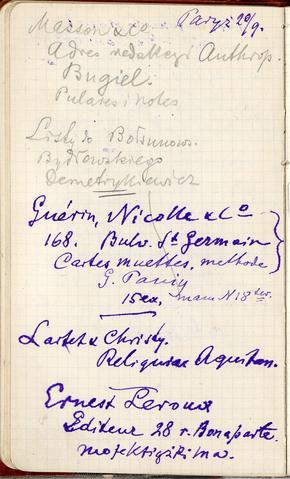 Paryż 20/9.
Masson & Co
Adres redakcyi Anthrop.
Bugiel.
Pulares i notes
Listy do Bołsunows.
Bydłowskiego
Demetrykiewicz
Guérin, Nicolle & Co
168. Bulv. St Germain
Cartes muettes, methode
G. Pauly
15 ex, mam N 18 ter.
Lartet & Christy.
Reliquiae Aquitan.
Ernest Leroux
Editeur 28 r. Bonaparte